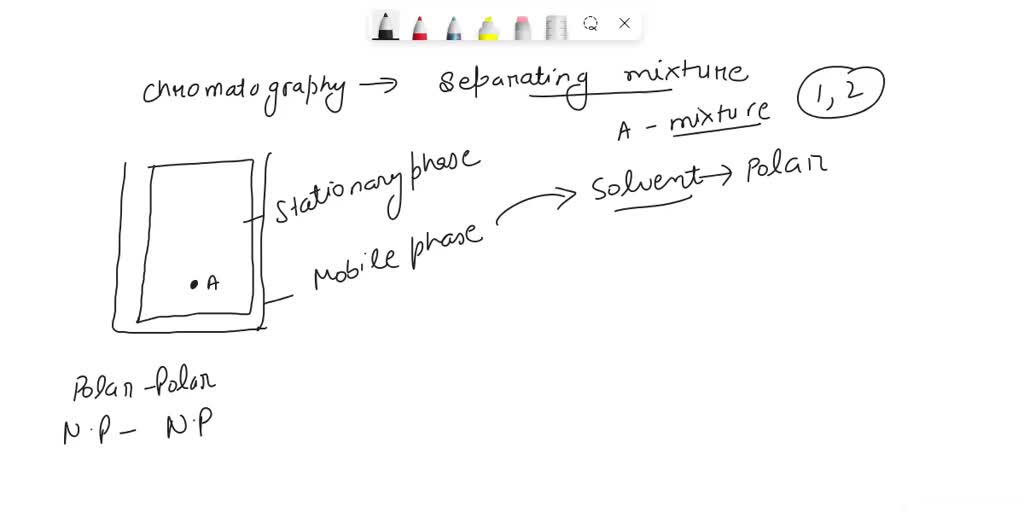 chromatography → separating mixture
A - mixture
1, 2
stationary phase
solvent → polar
Mobile phase
A
Polar - Polar
N.P - N.P